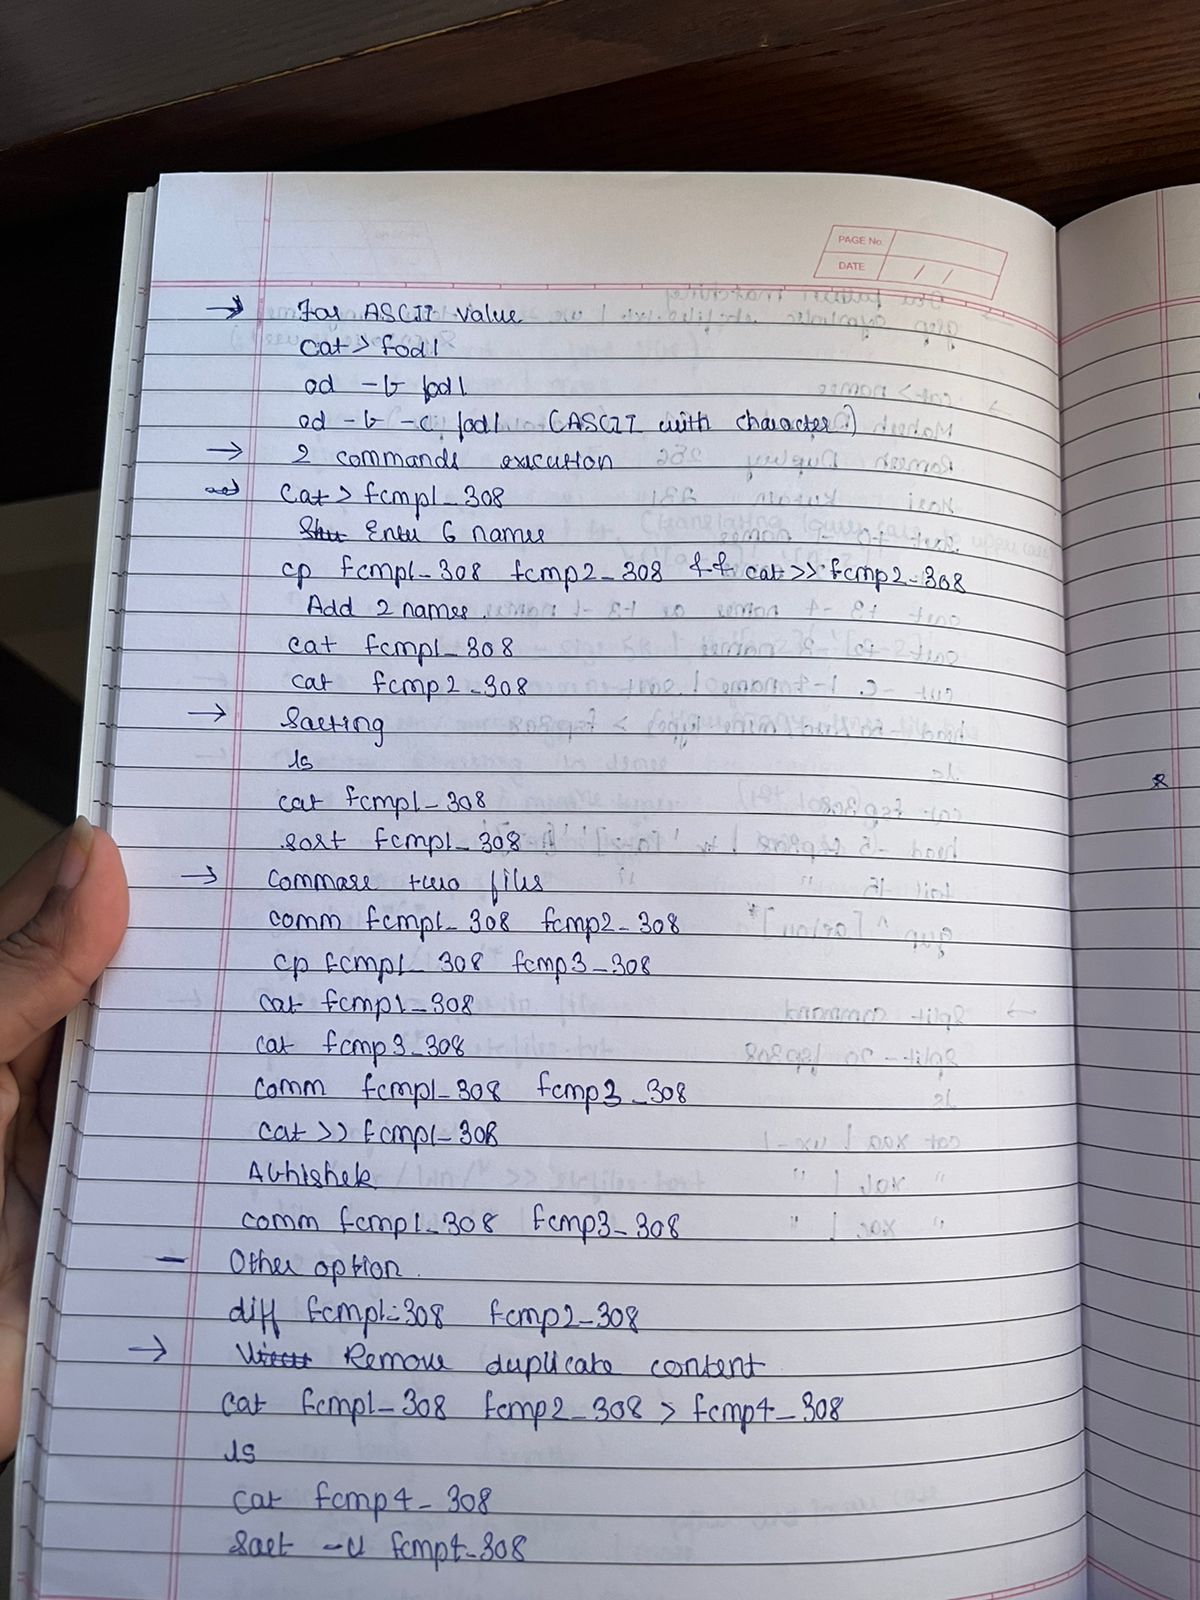 PAGE No.
DATE / /
→ For ASCII value
cat > fod1
od -b fod1
od -b -c fod1 (ASCII with character)
→ 2 commands execution
cat > fcmp1_308
Enter 6 names
cp fcmp1_308 fcmp2_308 && cat >> fcmp2_308
Add 2 names.
cat fcmp1_308
cat fcmp2_308
→ Sorting
ls
cat fcmp1_308
sort fcmp1_308
→ Commare two files
comm fcmp1_308 fcmp2_308
cp fcmp1_308 fcmp3_308
cat fcmp1_308
cat fcmp3_308
comm fcmp1_308 fcmp3_308
cat >> fcmp1_308
Abhishek
comm fcmp1_308 fcmp3_308
— Other option.
diff fcmp1=308 fcmp2_308
→ Remove duplicate content
cat fcmp1_308 fcmp2_308 > fcmp4_308
ls
cat fcmp4_308
Sort -u fcmp4_308